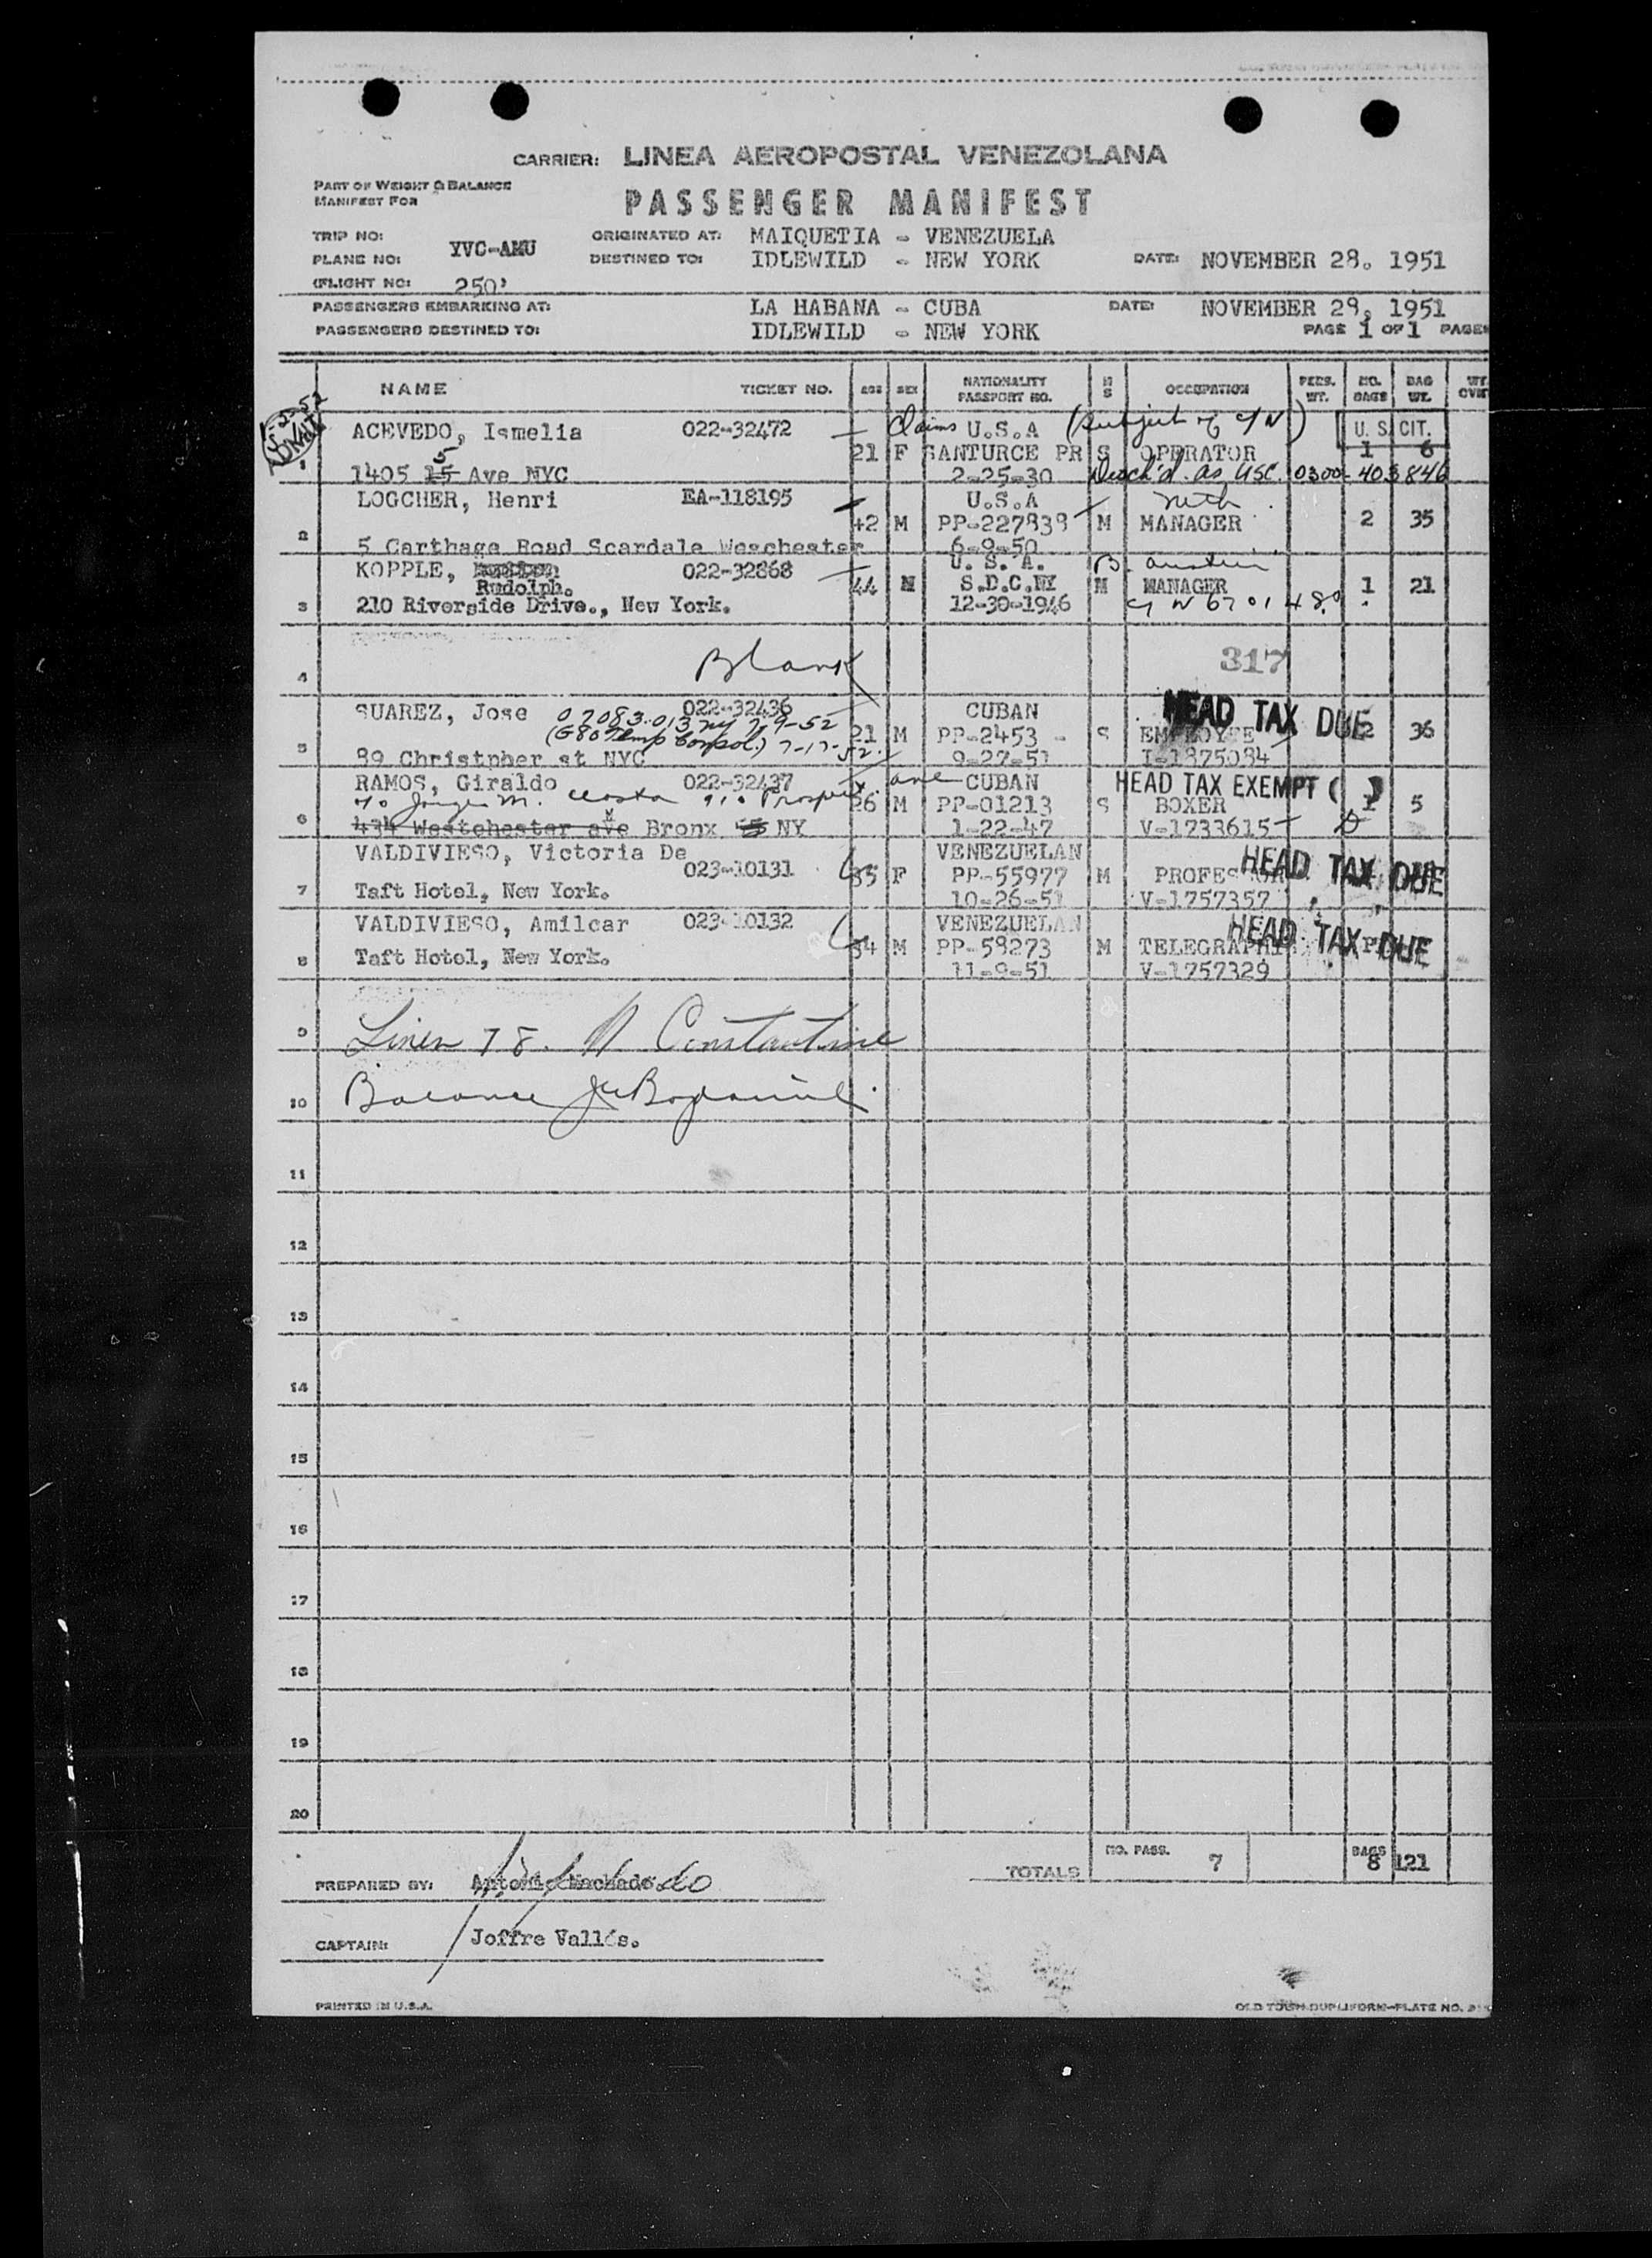 CARRIER: LINEA AEROPOSTAL VENEZOLANA
PART OF WEIGHT & BALANCE
MANIFEST FOR
PASSENGER MANIFEST
TRIP NO:
ORIGINATED AT: MAIQUETIA - VENEZUELA
PLANE NO: YVC-AMU
DESTINED TO: IDLEWILD - NEW YORK
DATE: NOVEMBER 28. 1951
FLIGHT NO: 250
PASSENGERS EMBARKING AT: LA HABANA - CUBA
DATE: NOVEMBER 29, 1951
PASSENGERS DESTINED TO: IDLEWILD - NEW YORK
PAGE 1 OF 1 PAGES
NAME TICKET NO. AGE SEX NATIONALITY PASSPORT NO. M S OCCUPATION PERS. WT. NO. BAGS BAG WT.
Claims (Subject of C/N)
ACEVEDO, Ismelia 022-32472 U.S.A U. S. CIT.
21 F SANTURCE PR S OPERATOR 1 6
1 1405 15 5 Ave NYC 2-25-30 as USC. 0300-403846
LOGCHER, Henri EA-118195 U.S.A Neth
42 M PP-227838 M MANAGER 2 35
2 5 Carthage Road Scardale Weschester 6-9-50
KOPPLE, Rudolph. 022-32868 U. S. A. B. Austria
44 M S.D.C.NY M MANAGER 1 21
3 210 Riverside Drive., New York. 12-30-1946 C/N 6701480
4 Blank 317
SUAREZ, Jose 022-32436 CUBAN HEAD TAX DUE
07083.013 NY 7-9-52
21 M PP-2453 - S EMPLOYEE 2 36
(G80 Temp ) 7-17-52
5 89 Christpher st NYC 9-27-51 I-1875084
RAMOS, Giraldo 022-32437 CUBAN HEAD TAX EXEMPT ( )
Prospect ave
26 M PP-01213 S BOXER 1 5
6 434 Westchester ave Bronx NY 1-22-47 V-1733615
VALDIVIESO, Victoria De VENEZUELAN
023-10131 35 F PP-55977 M HEAD TAX DUE
7 Taft Hotel, New York. 10-26-51 V-1757357
VALDIVIESO, Amilcar 023-10132 VENEZUELAN HEAD TAX DUE
34 M PP-58273 M
8 Taft Hotel, New York. 11-9-51 V-1757329
9 Lines 7 8. N Constantine
10 Balance
11
12
13
14
15
16
17
18
19
20
TOTALS NO. PASS. 7 BAGS 8 121
PREPARED BY: Antonio Machado
CAPTAIN: Joffre Vallés.
PRINTED IN U.S.A.